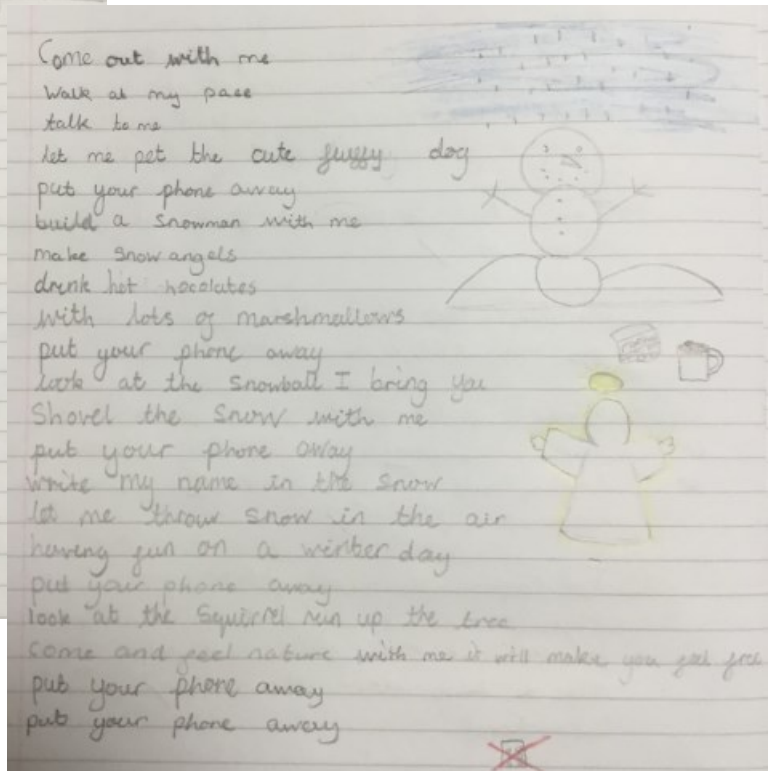 Come out with me
Walk at my pace
talk to me
let me pet the cute fuzzy dog
put your phone away
build a snowman with me
make snow angels
drink hot hocolates
with lots of marshmallows
put your phone away
look at the snowball I bring you
Shovel the snow with me
put your phone away
write my name in the snow
let me throw snow in the air
having fun on a winter day
put your phone away
look at the squirrel run up the tree
come and feel nature with me it will make you feel free
put your phone away
put your phone away